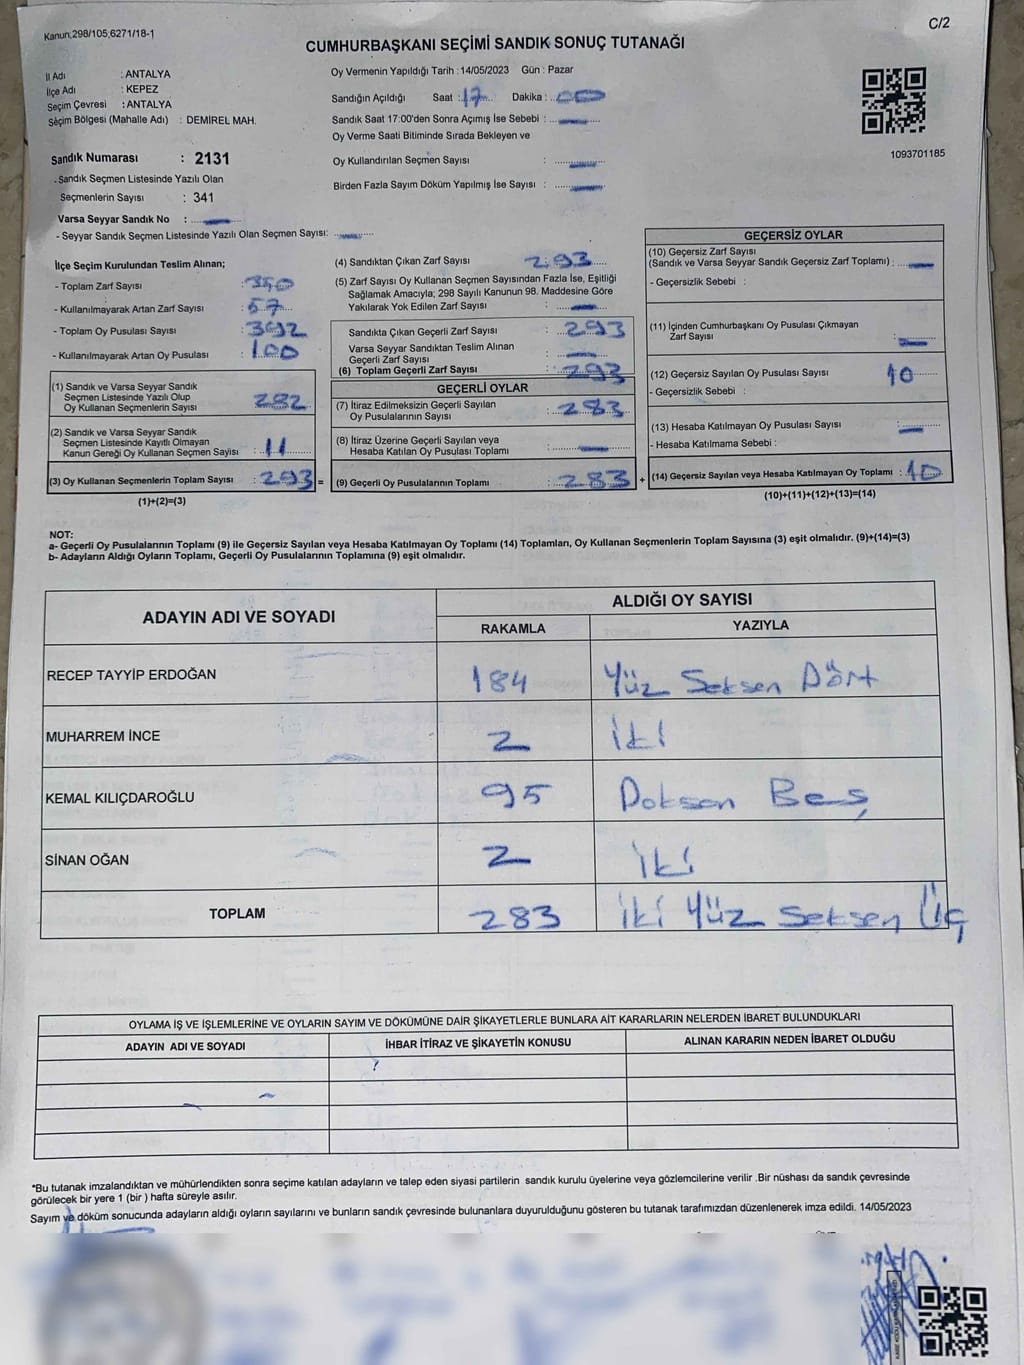 Kanun;298/105;6271/18-1
C/2
CUMHURBAŞKANI SEÇİMİ SANDIK SONUÇ TUTANAĞI
İl Adı : ANTALYA
İlçe Adı : KEPEZ
Seçim Çevresi : ANTALYA
Seçim Bölgesi (Mahalle Adı) : DEMİREL MAH.
Oy Vermenin Yapıldığı Tarih : 14/05/2023 Gün : Pazar
Sandığın Açıldığı Saat : 17 Dakika : 00
Sandık Saat 17:00'den Sonra Açımış İse Sebebi :
Oy Verme Saati Bitiminde Sırada Bekleyen ve
Oy Kullandırılan Seçmen Sayısı :
Birden Fazla Sayım Döküm Yapılmış İse Sayısı :
1093701185
Sandık Numarası : 2131
- Sandık Seçmen Listesinde Yazılı Olan
Seçmenlerin Sayısı : 341
Varsa Seyyar Sandık No :
- Seyyar Sandık Seçmen Listesinde Yazılı Olan Seçmen Sayısı:
İlçe Seçim Kurulundan Teslim Alınan;
- Toplam Zarf Sayısı : 350
- Kullanılmayarak Artan Zarf Sayısı : 57
- Toplam Oy Pusulası Sayısı : 392
- Kullanılmayarak Artan Oy Pusulası : 100
(1) Sandık ve Varsa Seyyar Sandık
Seçmen Listesinde Yazılı Olup
Oy Kullanan Seçmenlerin Sayısı : 282
(2) Sandık ve Varsa Seyyar Sandık
Seçmen Listesinde Kayıtlı Olmayan
Kanun Gereği Oy Kullanan Seçmen Sayısı : 11
(3) Oy Kullanan Seçmenlerin Toplam Sayısı : 293 =
(1)+(2)=(3)
(4) Sandıktan Çıkan Zarf Sayısı 293
(5) Zarf Sayısı Oy Kullanan Seçmen Sayısından Fazla İse, Eşitliği
Sağlamak Amacıyla; 298 Sayılı Kanunun 98. Maddesine Göre
Yakılarak Yok Edilen Zarf Sayısı :
Sandıkta Çıkan Geçerli Zarf Sayısı : 293
Varsa Seyyar Sandıktan Teslim Alınan
Geçerli Zarf Sayısı :
(6) Toplam Geçerli Zarf Sayısı : 293
GEÇERLİ OYLAR
(7) İtiraz Edilmeksizin Geçerli Sayılan
Oy Pusulalarının Sayısı : 283
(8) İtiraz Üzerine Geçerli Sayılan veya
Hesaba Katılan Oy Pusulası Toplamı :
(9) Geçerli Oy Pusulalarının Toplamı : 283 +
GEÇERSİZ OYLAR
(10) Geçersiz Zarf Sayısı
(Sandık ve Varsa Seyyar Sandık Geçersiz Zarf Toplamı) :
- Geçersizlik Sebebi :
(11) İçinden Cumhurbaşkanı Oy Pusulası Çıkmayan
Zarf Sayısı :
(12) Geçersiz Sayılan Oy Pusulası Sayısı : 10
- Geçersizlik Sebebi :
(13) Hesaba Katılmayan Oy Pusulası Sayısı :
- Hesaba Katılmama Sebebi :
(14) Geçersiz Sayılan veya Hesaba Katılmayan Oy Toplamı : 10
(10)+(11)+(12)+(13)=(14)
NOT:
a- Geçerli Oy Pusulalarının Toplamı (9) ile Geçersiz Sayılan veya Hesaba Katılmayan Oy Toplamı (14) Toplamları, Oy Kullanan Seçmenlerin Toplam Sayısına (3) eşit olmalıdır. (9)+(14)=(3)
b- Adayların Aldığı Oyların Toplamı, Geçerli Oy Pusulalarının Toplamına (9) eşit olmalıdır.
ADAYIN ADI VE SOYADI
ALDIĞI OY SAYISI
RAKAMLA YAZIYLA
RECEP TAYYİP ERDOĞAN 184 Yüz Seksen Dört
MUHARREM İNCE 2 İki
KEMAL KILIÇDAROĞLU 95 Doksan Beş
SİNAN OĞAN 2 İki
TOPLAM 283 İki Yüz Seksen Üç
OYLAMA İŞ VE İŞLEMLERİNE VE OYLARIN SAYIM VE DÖKÜMÜNE DAİR ŞİKAYETLERLE BUNLARA AİT KARARLARIN NELERDEN İBARET BULUNDUKLARI
ADAYIN ADI VE SOYADI İHBAR İTİRAZ VE ŞİKAYETİN KONUSU ALINAN KARARIN NEDEN İBARET OLDUĞU
*Bu tutanak imzalandıktan ve mühürlendikten sonra seçime katılan adayların ve talep eden siyasi partilerin sandık kurulu üyelerine veya gözlemcilerine verilir .Bir nüshası da sandık çevresinde
görülecek bir yere 1 (bir ) hafta süreyle asılır.
Sayım ve döküm sonucunda adayların aldığı oyların sayılarını ve bunların sandık çevresinde bulunanlara duyurulduğunu gösteren bu tutanak tarafımızdan düzenlenerek imza edildi. 14/05/2023